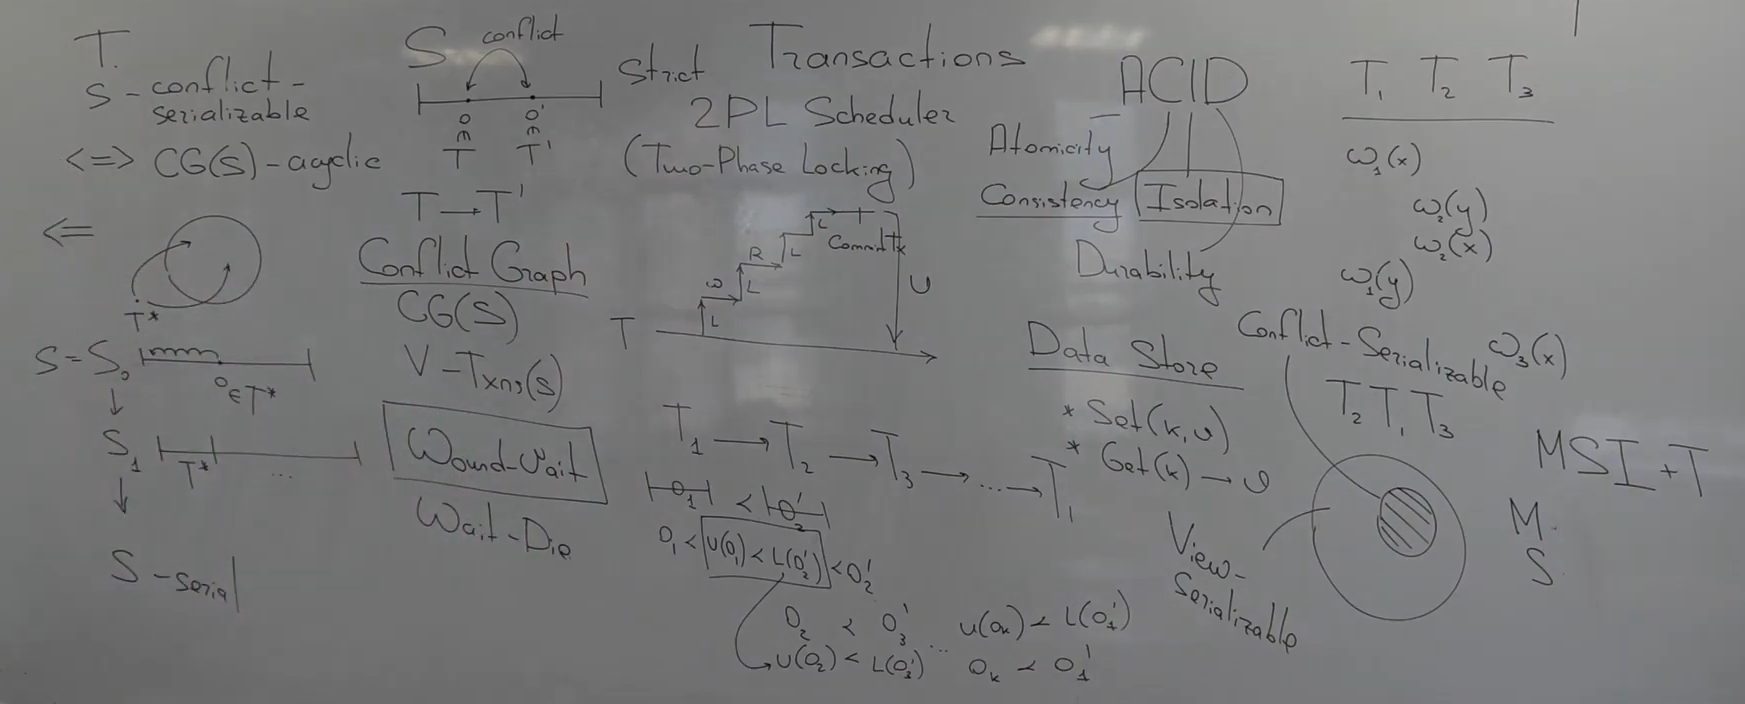 T.
S - conflict-
serializable
<=> CG(S) - acyclic
<=
T*
S = S₀
o ∈ T*
S₁
T*
...
S - serial
S
conflict
o o'
∈ ∈
T T'
T → T'
Conflict Graph
CG(S)
V - Txns(S)
Wound-Wait
Wait-Die
Transactions
Strict
2PL Scheduler
(Two-Phase Locking)
T
L
W
L
R
L
L
Commit Tx
U
T₁ → T₂ → T₃ → ... → T₁
O₁ < O₂'
O₁ < U(O₁) < L(O₂') < O₂'
O₂ < O₃'
U(O₂) < L(O₃')
...
U(Oₖ) < L(O₁')
Oₖ < O₁'
ACID
Atomicity
Consistency Isolation
Durability
Data Store
* Set(k, v)
* Get(k) → v
T₁ T₂ T₃
ω₁(x)
ω₂(y)
ω₂(x)
ω₁(y)
ω₃(x)
Conflict-Serializable
T₂ T₁ T₃
View-
Serializable
MSI + T
M
S